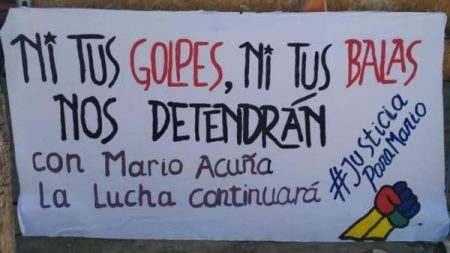 NI TUS GOLPES, NI TUS BALAS
NOS DETENDRÁN
con Mario Acuña
La Lucha continuará
#Justicia
ParaMario